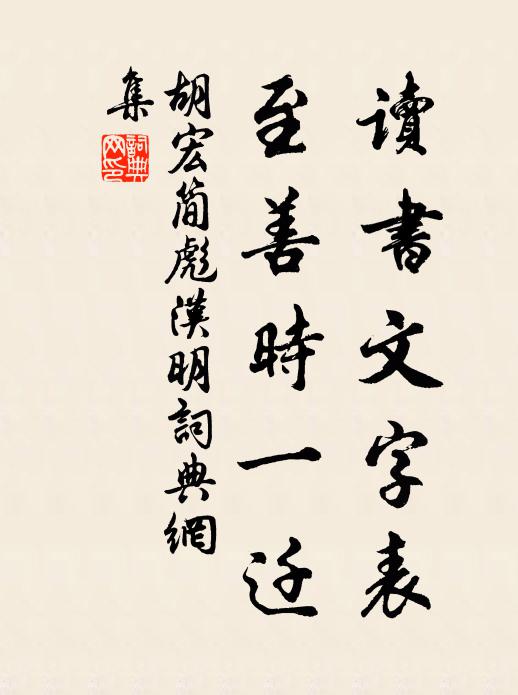 讀書文字表
至善時一迁
胡宏簡彪漢明詞典網
集
詞典
网印